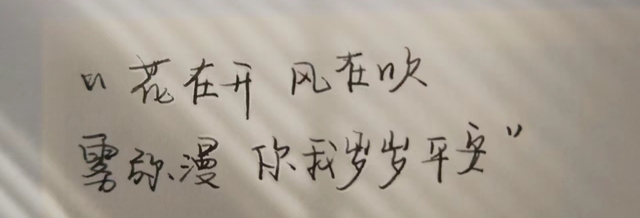 “花在开 风在吹
雾弥漫 你我岁岁平安”